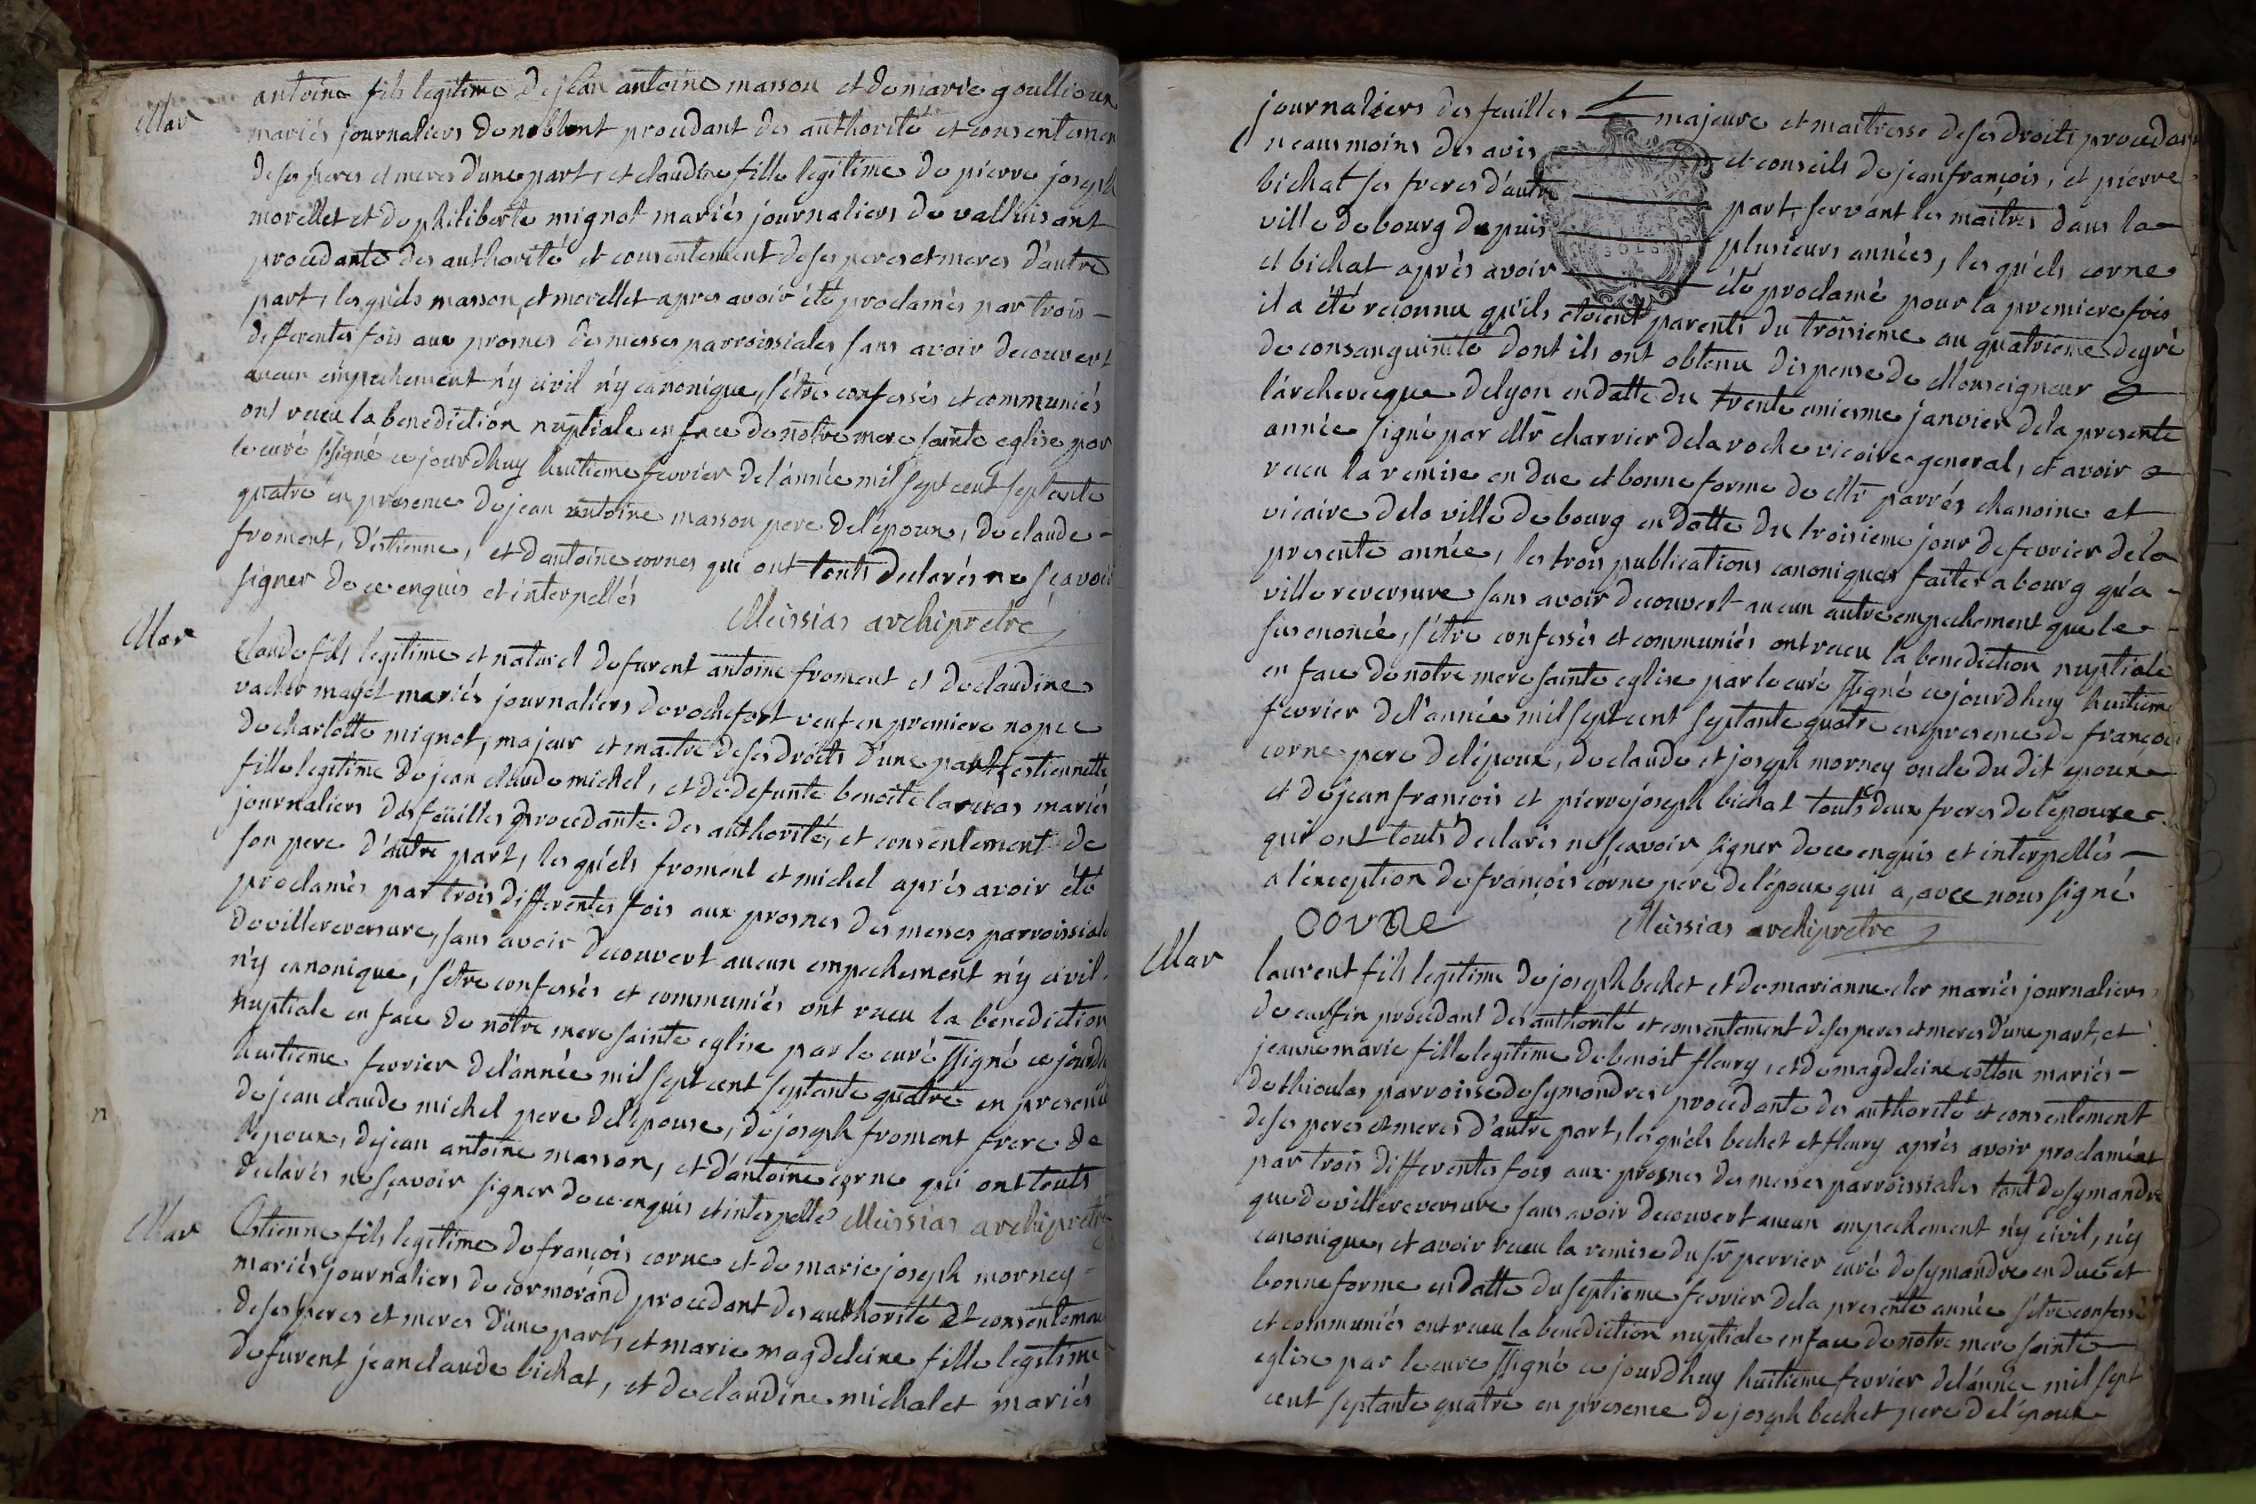 Mar
antoine fils legitime de jean antoine masson et de marie goullioux
mariés journaliers de noblent procedant des authorité et consentemen
de ses peres et meres d'une part, et claudine fille legitime de pierre joseph
morellet et de philiberte mignot mariés journaliers de valluisant
procedante des authorité et consentement de ses peres et meres d'autre
part, les quels masson, et morellet apres avoir été proclamés par trois
differentes fois aux prosnes des messes parroissiales sans avoir decouvert
aucun empechement n'y civil n'y canonique, s'étrés confessés et communiés
ont receu la benediction nuptiale en face de nôtre mere sainte eglise par
le curé ssigné ce jourdhuy huitieme fevrier de l'année mil sept cent septante
quatre en presence de jean antoine masson pere de l'epoux, de claude
froment, d'estienne, et d'antoine cornes qui ont touts declarés ne sçavoir
signer de ce enquis et interpellés
Meissias archipretre
Mar
Claude fils legitime et naturel de furent antoine froment et de claudine
vacher mayet mariés journaliers de rochefort veuf en premiere nopce
de charlotte mignot, majeur et maitre de ses droits d'une part, estiennette
fille legitime de jean claude michel, et de defunte benoite laruras mariés
journaliers des feuilles procedante des authorité, et consentement de
son pere d'autre part, les quels froment et michel aprés avoir été
proclamés par trois differentes fois aux prosnes des messes parroissiale
de villereversure, sans avoir decouvert aucun empechement n'y civil
n'y canonique, s'étre confessés et communiés ont receu la benediction
nuptiale en face de nôtre mere sainte eglise par le curé ssigné ce jourdh
huitieme fevrier de l'année mil sept cent septante quatre en presence
de jean claude michel pere de l'epouse, de joseph froment frere de
l'epoux, de jean antoine masson, et d'antoine corne qui ont touts
declarés ne sçavoir signer de ce enquis et interpellés Meissias archipretre
Mar
Estienne fils legitime de françois corne et de marie joseph morney
mariés journaliers de cormorand procedant des authorité et consentemen
de ses peres et meres d'une part, et marie magdeleine fille legitime
de furent jean claude bichat, et de claudine michalet mariés
journaliers des feuilles majeure et maitresse de ses droits procedan
neansmoins des avis et conseils de jean françois, et pierre
bichat ses freres d'autre part, servant les maîtres dans la
ville de bourg depuis plusieurs années, les quels corne
et bichat aprés avoir été proclamé pour la premiere fois
il a été reconnu qu'ils etoient parents du troisieme au quatrieme degré
de consanguinité dont ils ont obtenu dispense de Monseigneur
l'archeveque de lyon en datte du trente unieme janvier de la presente
année signé par Mr charrier de la roche vicaire general, et avoir
receu la remise en due et bonne forme de Mr parrés chanoine et
vicaire de la ville de bourg en datte du troisieme jour de fevrier de la
presente année, les trois publications canoniques faites a bourg qu'a
villereversure sans avoir decouvert aucun autre empechement que le
susenoncé, s'étre confessés et communiés ont receu la benediction nuptiale
en face de nôtre mere sainte eglise par le curé ssigné ce jourdhuy huitieme
fevrier de l'année mil sept cent septante quatre en presence de françois
corne pere de l'époux, de claude et joseph morney oncle du dit epoux
et de jean francois et pierre joseph bichat touts deux freres de l'epouse
qui ont touts declarés ne scavoir signer de ce enquis et interpellés
a l'exception de françois corne pere de l'époux qui a, avec nous signé
corne Meissias archipretre
Mar
laurent fils legitime de joseph bechet et de marianne cler mariés journaliers
de curfin procedant des authorité et consentement de ses peres et meres d'une part, et
jeanne marie fille legitime de benoit fleury, et de magdeleine cotton mariés
de thioulas parroisse de symondres procedante des authorité et consentement
de ses peres et meres d'autre part, les quels bechet et fleury aprés avoir proclamées
par trois differentes fois aux prosnes des messes parroissiales tant de symandre
que de villereversure sans avoir decouvert aucun empechement n'y civil, n'y
canonique, et avoir receu la remise du sr perrier curé de symandre en due et
bonne forme en datte du septieme fevrier de la presente année s'étre confessé
et communiés ont receu la benediction nuptiale en face de nôtre mere sainte
eglise par le curé ssigné ce jourdhuy huitieme fevrier de l'année mil sept
cent septante quatre en presence de joseph bechet pere de l'époux